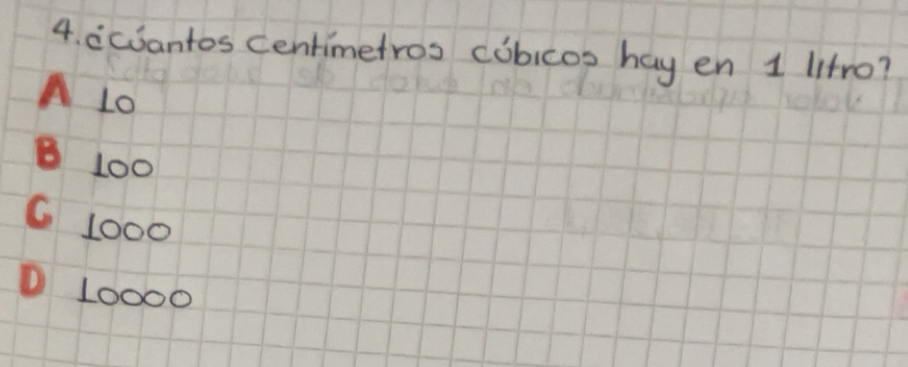 4. ¿cúantos centímetros cúbicos hay en 1 litro?
A 10
B 100
C 1000
D 10000